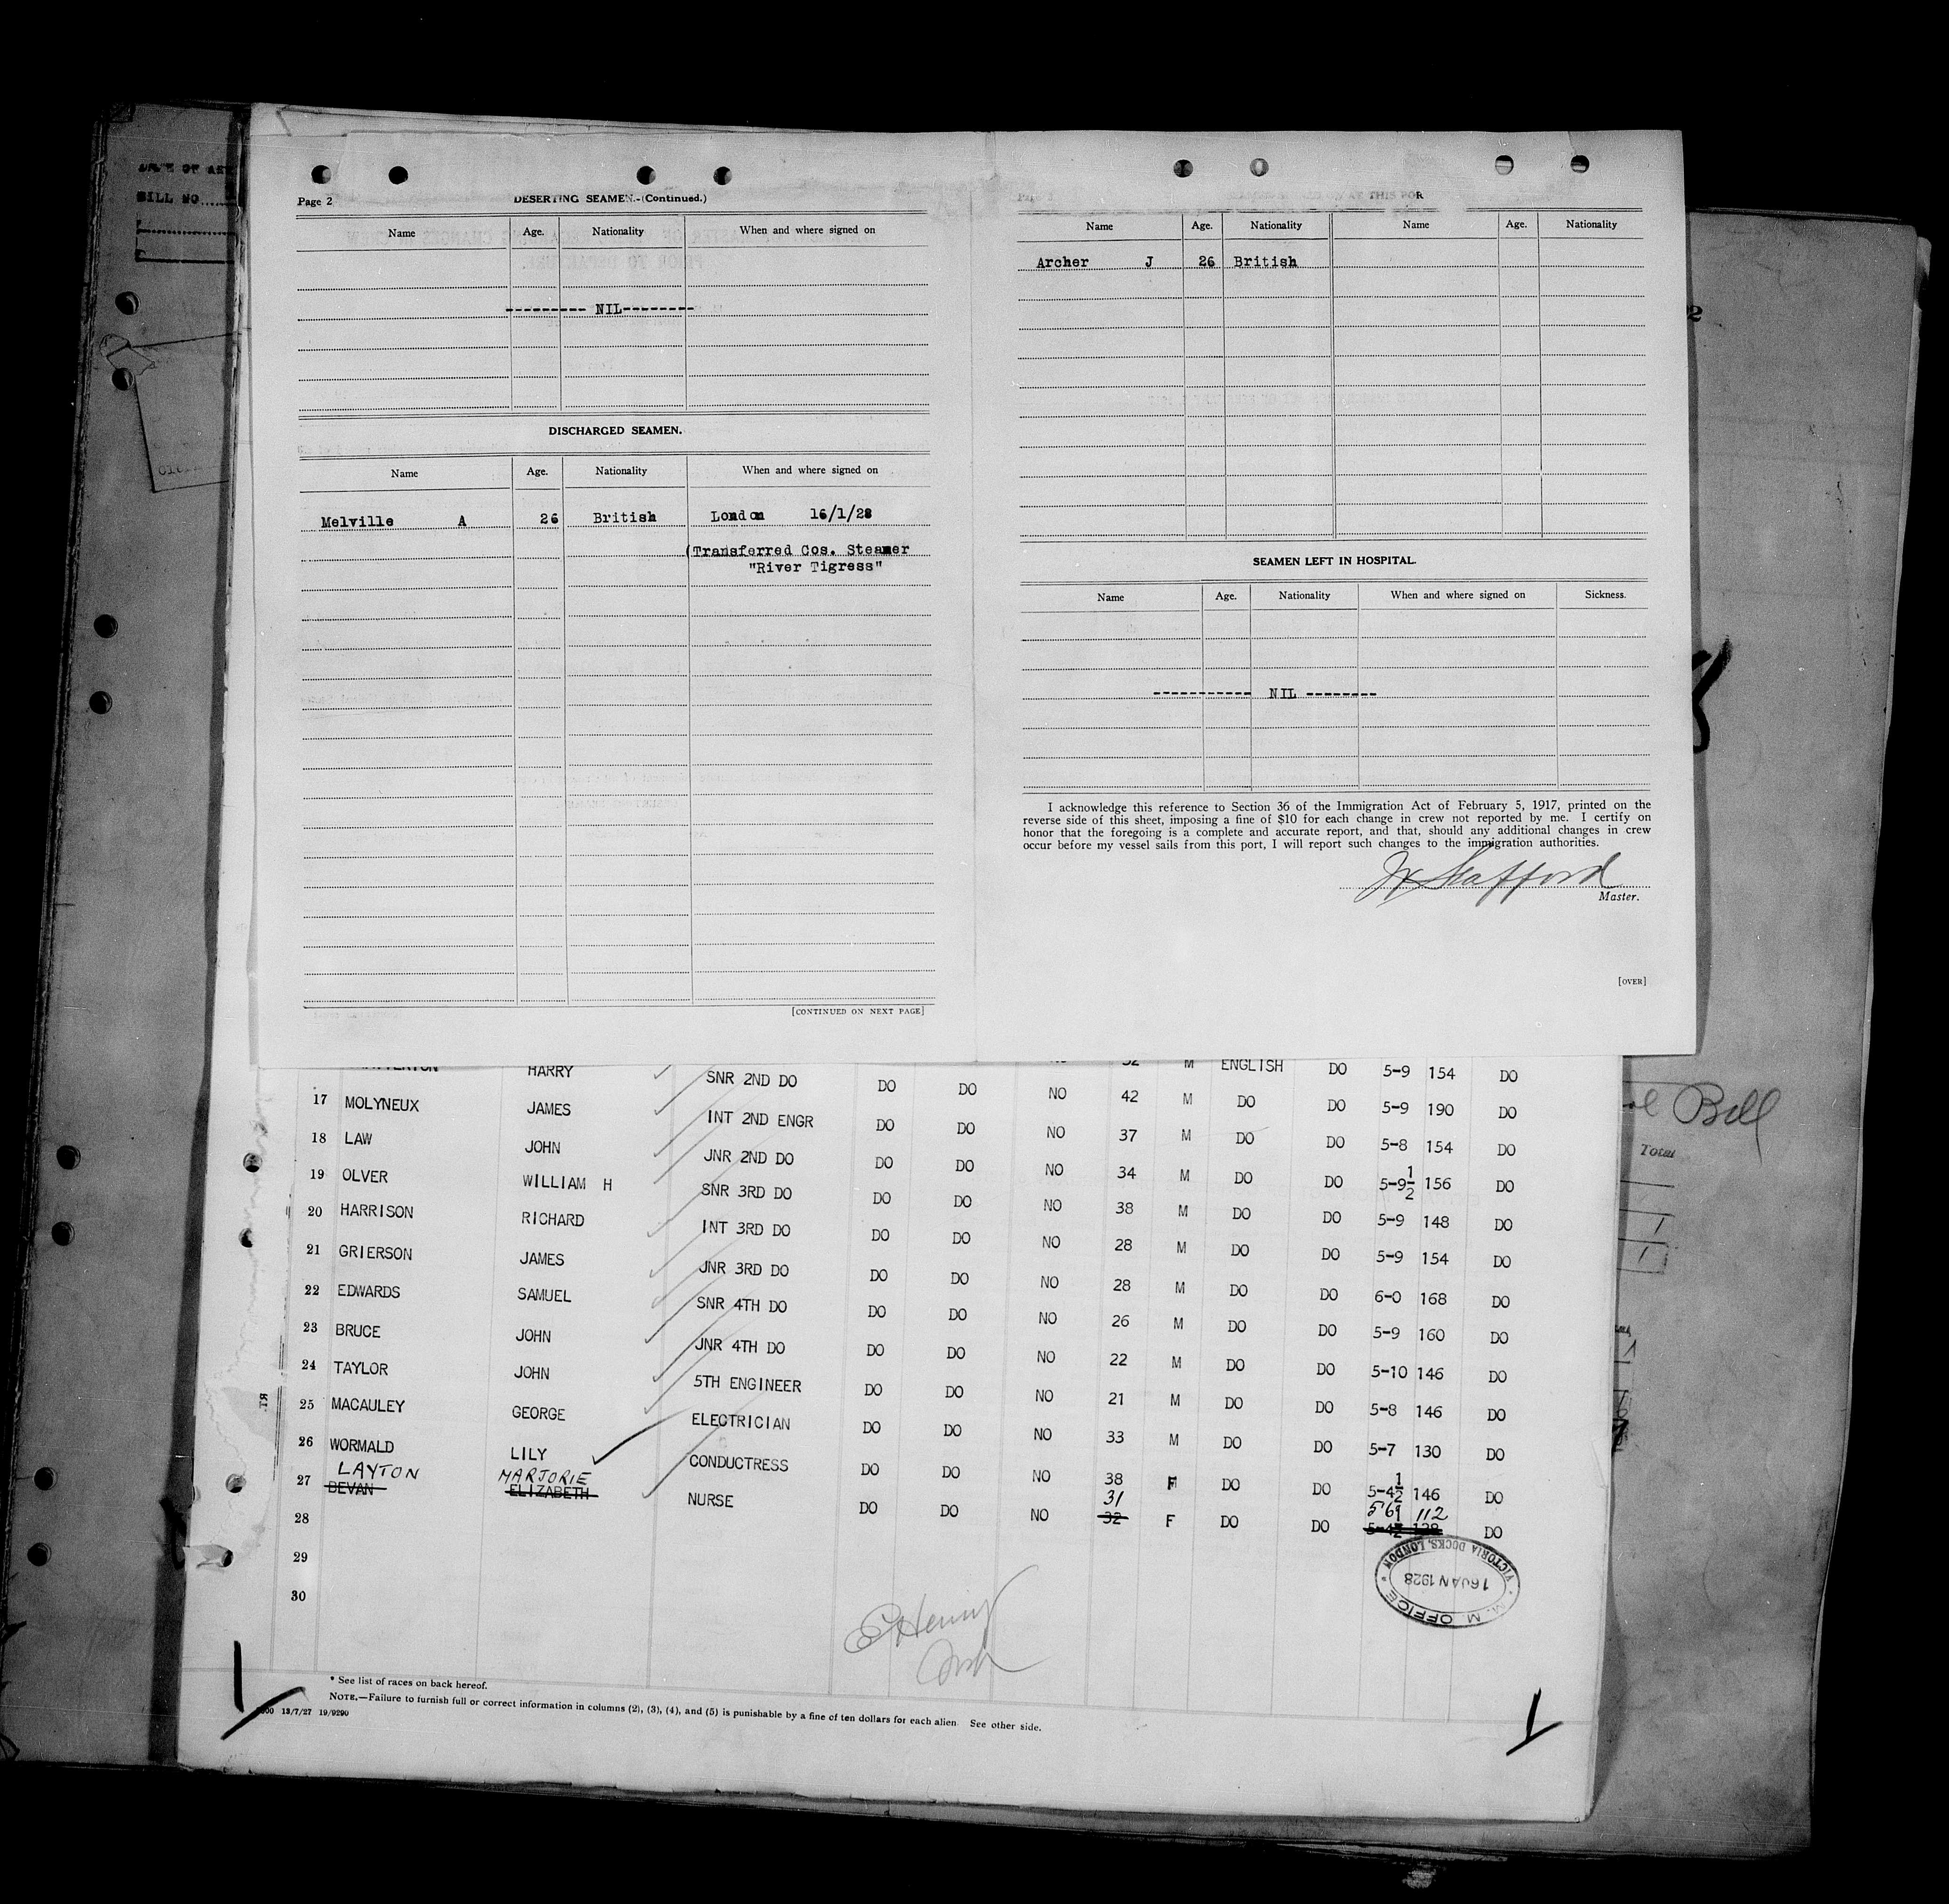 Page 2 DESERTING SEAMEN.-(Continued.)
Name Age. Nationality When and where signed on
--------- NIL--------
DISCHARGED SEAMEN.
Name Age. Nationality When and where signed on
Melville A 26 British London 16/1/28
(Transferred Cos. Steamer
"River Tigress"
[CONTINUED ON NEXT PAGE]
AT THIS POR
Name Age. Nationality Name Age. Nationality
Archer J 26 British
SEAMEN LEFT IN HOSPITAL.
Name Age. Nationality When and where signed on Sickness.
----------- NIL --------
I acknowledge this reference to Section 36 of the Immigration Act of February 5, 1917, printed on the
reverse side of this sheet, imposing a fine of $10 for each change in crew not reported by me. I certify on
honor that the foregoing is a complete and accurate report, and that, should any additional changes in crew
occur before my vessel sails from this port, I will report such changes to the immigration authorities.
Master.
[OVER]
HARRY SNR 2ND DO DO DO NO 32 M ENGLISH DO 5-9 154 DO
17 MOLYNEUX JAMES INT 2ND ENGR DO DO NO 42 M DO DO 5-9 190 DO
18 LAW JOHN JNR 2ND DO DO DO NO 37 M DO DO 5-8 154 DO
19 OLVER WILLIAM H SNR 3RD DO DO DO NO 34 M DO DO 5-9½ 156 DO
20 HARRISON RICHARD INT 3RD DO DO DO NO 38 M DO DO 5-9 148 DO
21 GRIERSON JAMES JNR 3RD DO DO DO NO 28 M DO DO 5-9 154 DO
22 EDWARDS SAMUEL SNR 4TH DO DO DO NO 28 M DO DO 6-0 168 DO
23 BRUCE JOHN JNR 4TH DO DO DO NO 26 M DO DO 5-9 160 DO
24 TAYLOR JOHN 5TH ENGINEER DO DO NO 22 M DO DO 5-10 146 DO
25 MACAULEY GEORGE ELECTRICIAN DO DO NO 21 M DO DO 5-8 146 DO
26 WORMALD LILY CONDUCTRESS DO DO NO 33 M DO DO 5-7 130 DO
LAYTON MARJORIE
27 BEVAN ELIZABETH NURSE DO DO NO 38 F DO DO 5-4½ 146 DO
31 112
28 DO DO NO 32 F DO DO DO
29
30
VICTORIA DOCKS, LONDON
16 JAN 1928
M. M. OFFICE
* See list of races on back hereof.
NOTE.—Failure to furnish full or correct information in columns (2), (3), (4), and (5) is punishable by a fine of ten dollars for each alien. See other side.
13/7/27 19/9290
BILL NO
Bell
Total